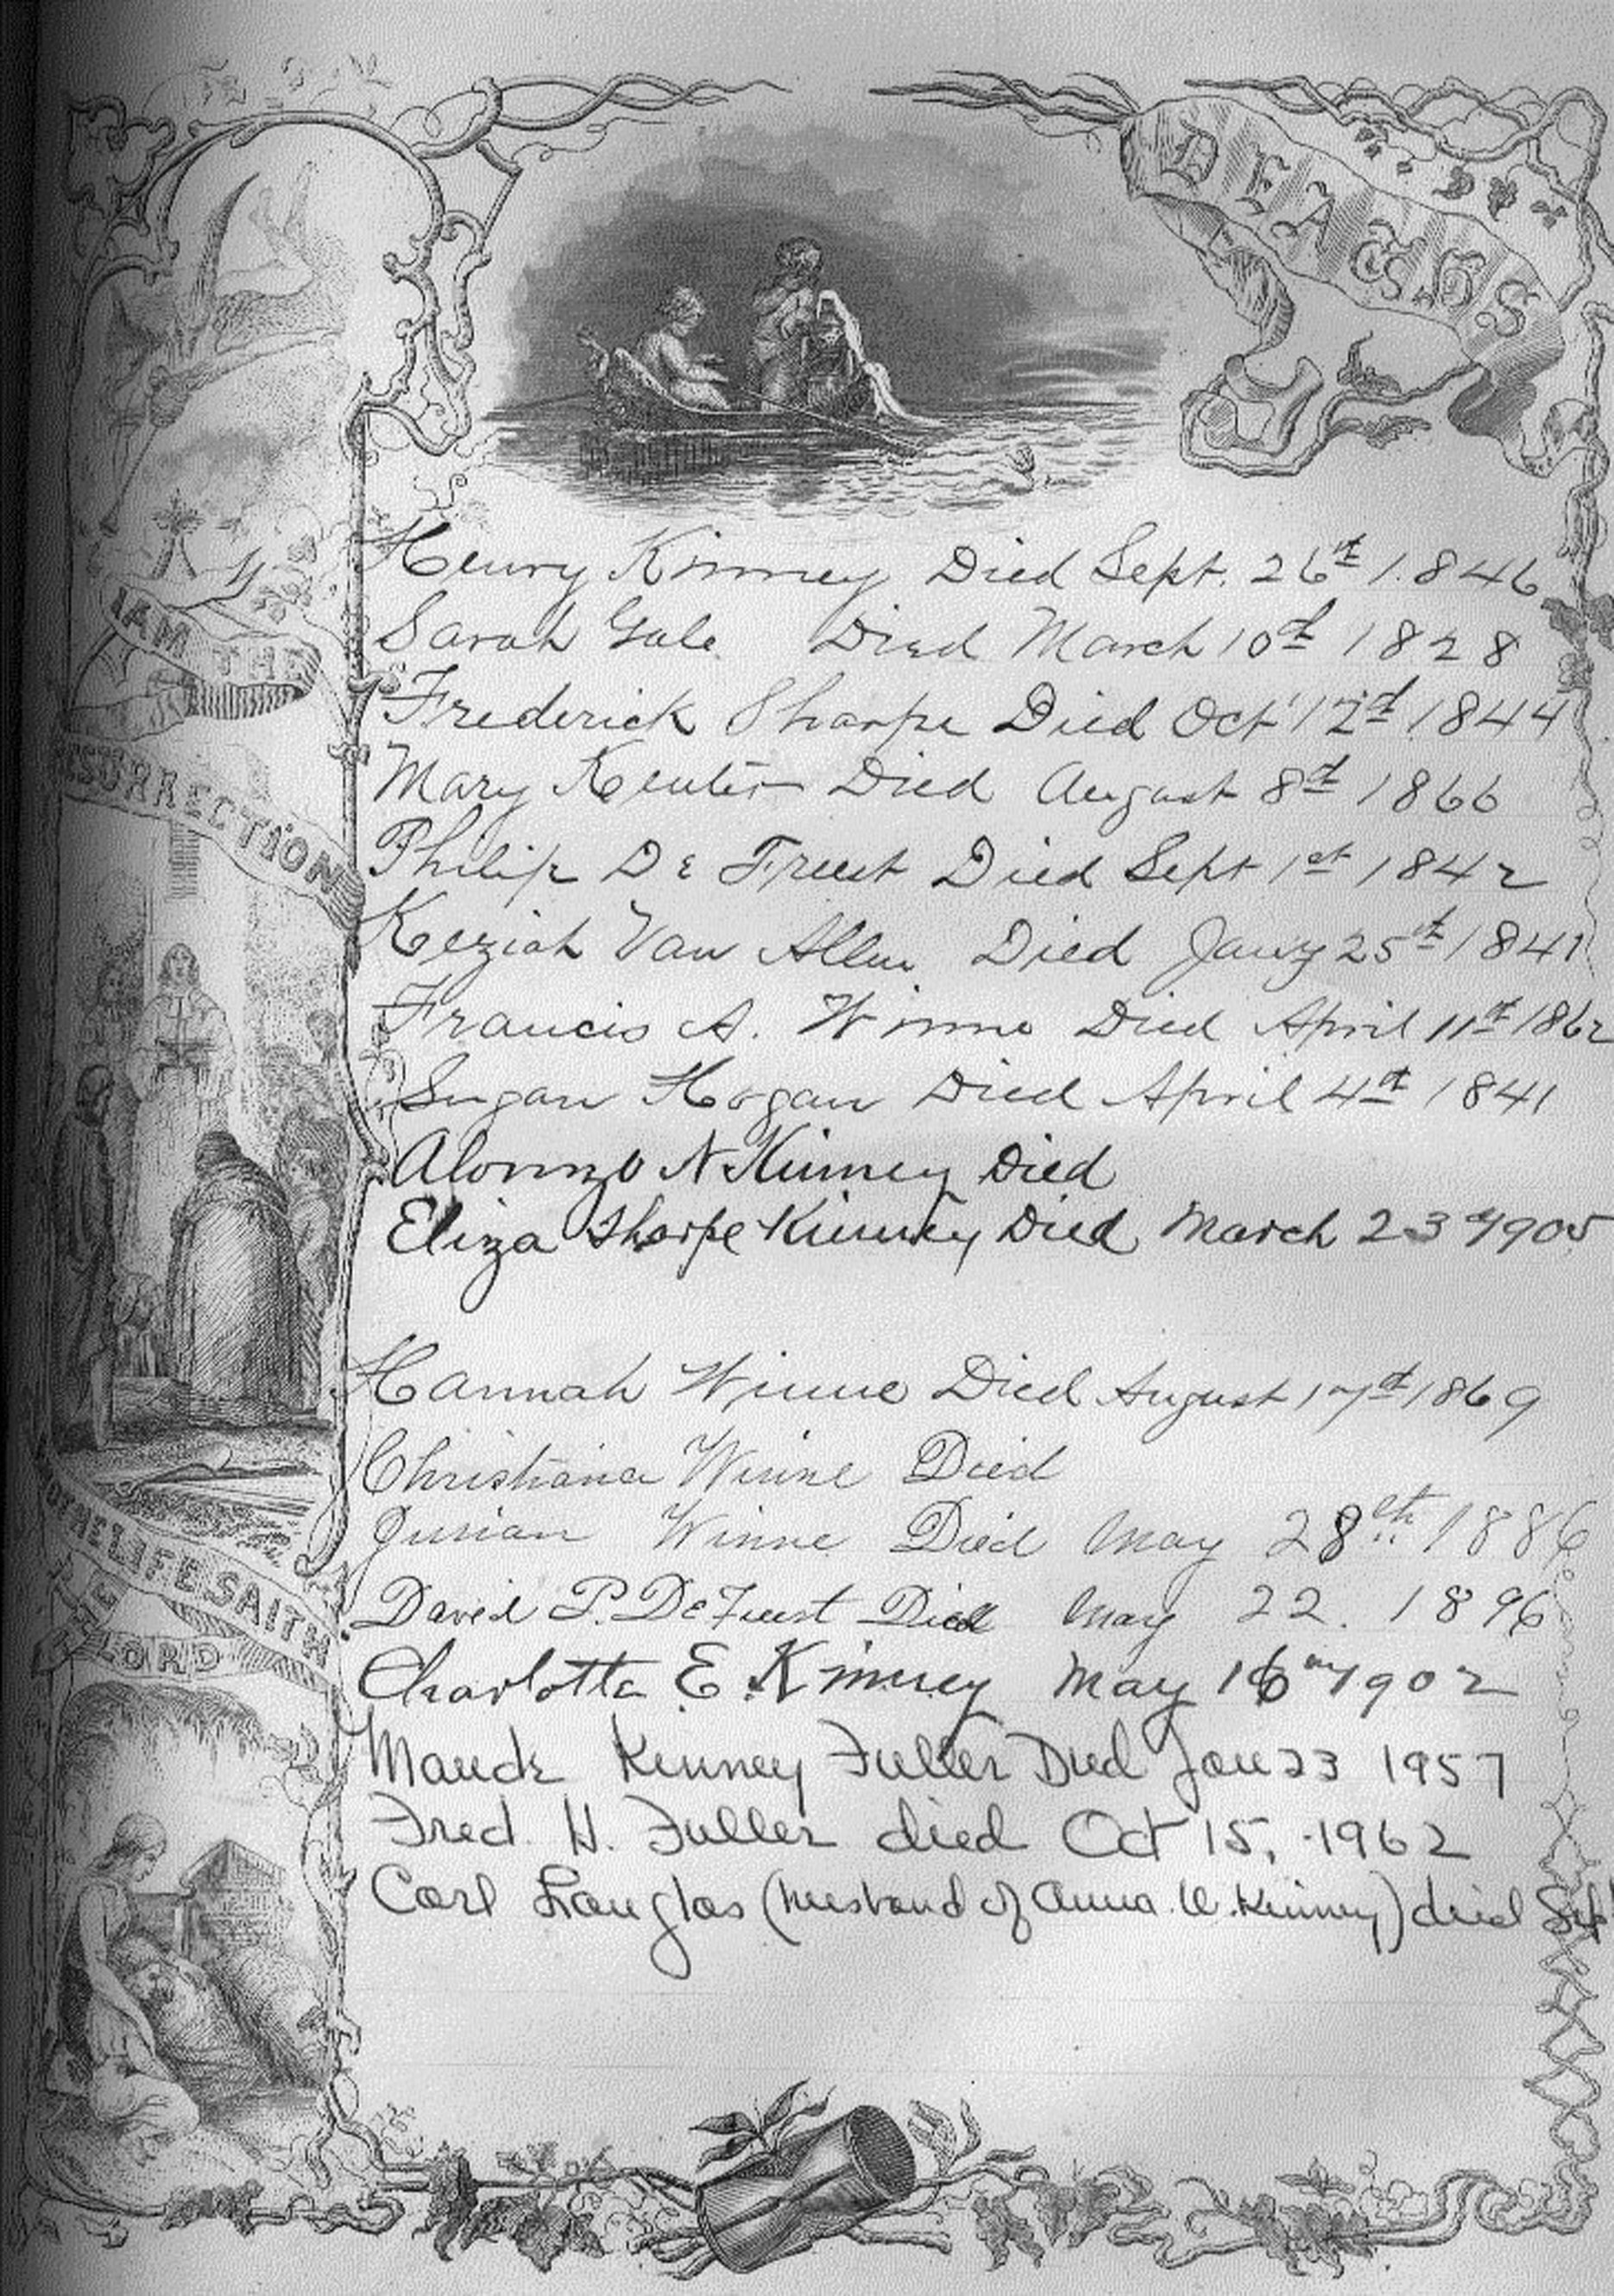 DEATHS
I AM THE
RESURRECTION
Henry Kinney Died Sept. 26th 1846
Sarah Gale Died March 10th 1828
Frederick Sharpe Died Oct 12d 1844
Mary Died August 8th 1866
Philip De Freest Died Sept 1st 1842
Keziah Van Allen Died Jany 25th 1841
Francis A. Winne Died April 11th 1862
Susan Hogan Died April 4th 1841
Alonzo N Kinney Died
Eliza Sharpe Kinney Died March 23 1905
Hannah Winne Died August 17th 1869
Christiana Winne Died
Jurian Winne Died May 28th 1886
David P. DeFreest Died May 22. 1896
Charlotte E. Kinney May 16 1902
Maude Kinney Fuller Died Jan 23 1957
Fred. H. Fuller died Oct 15, 1962
Carl Lauglas (husband of Anna. W. Kinney) died Sept
THE LIFE SAITH
THE
LORD